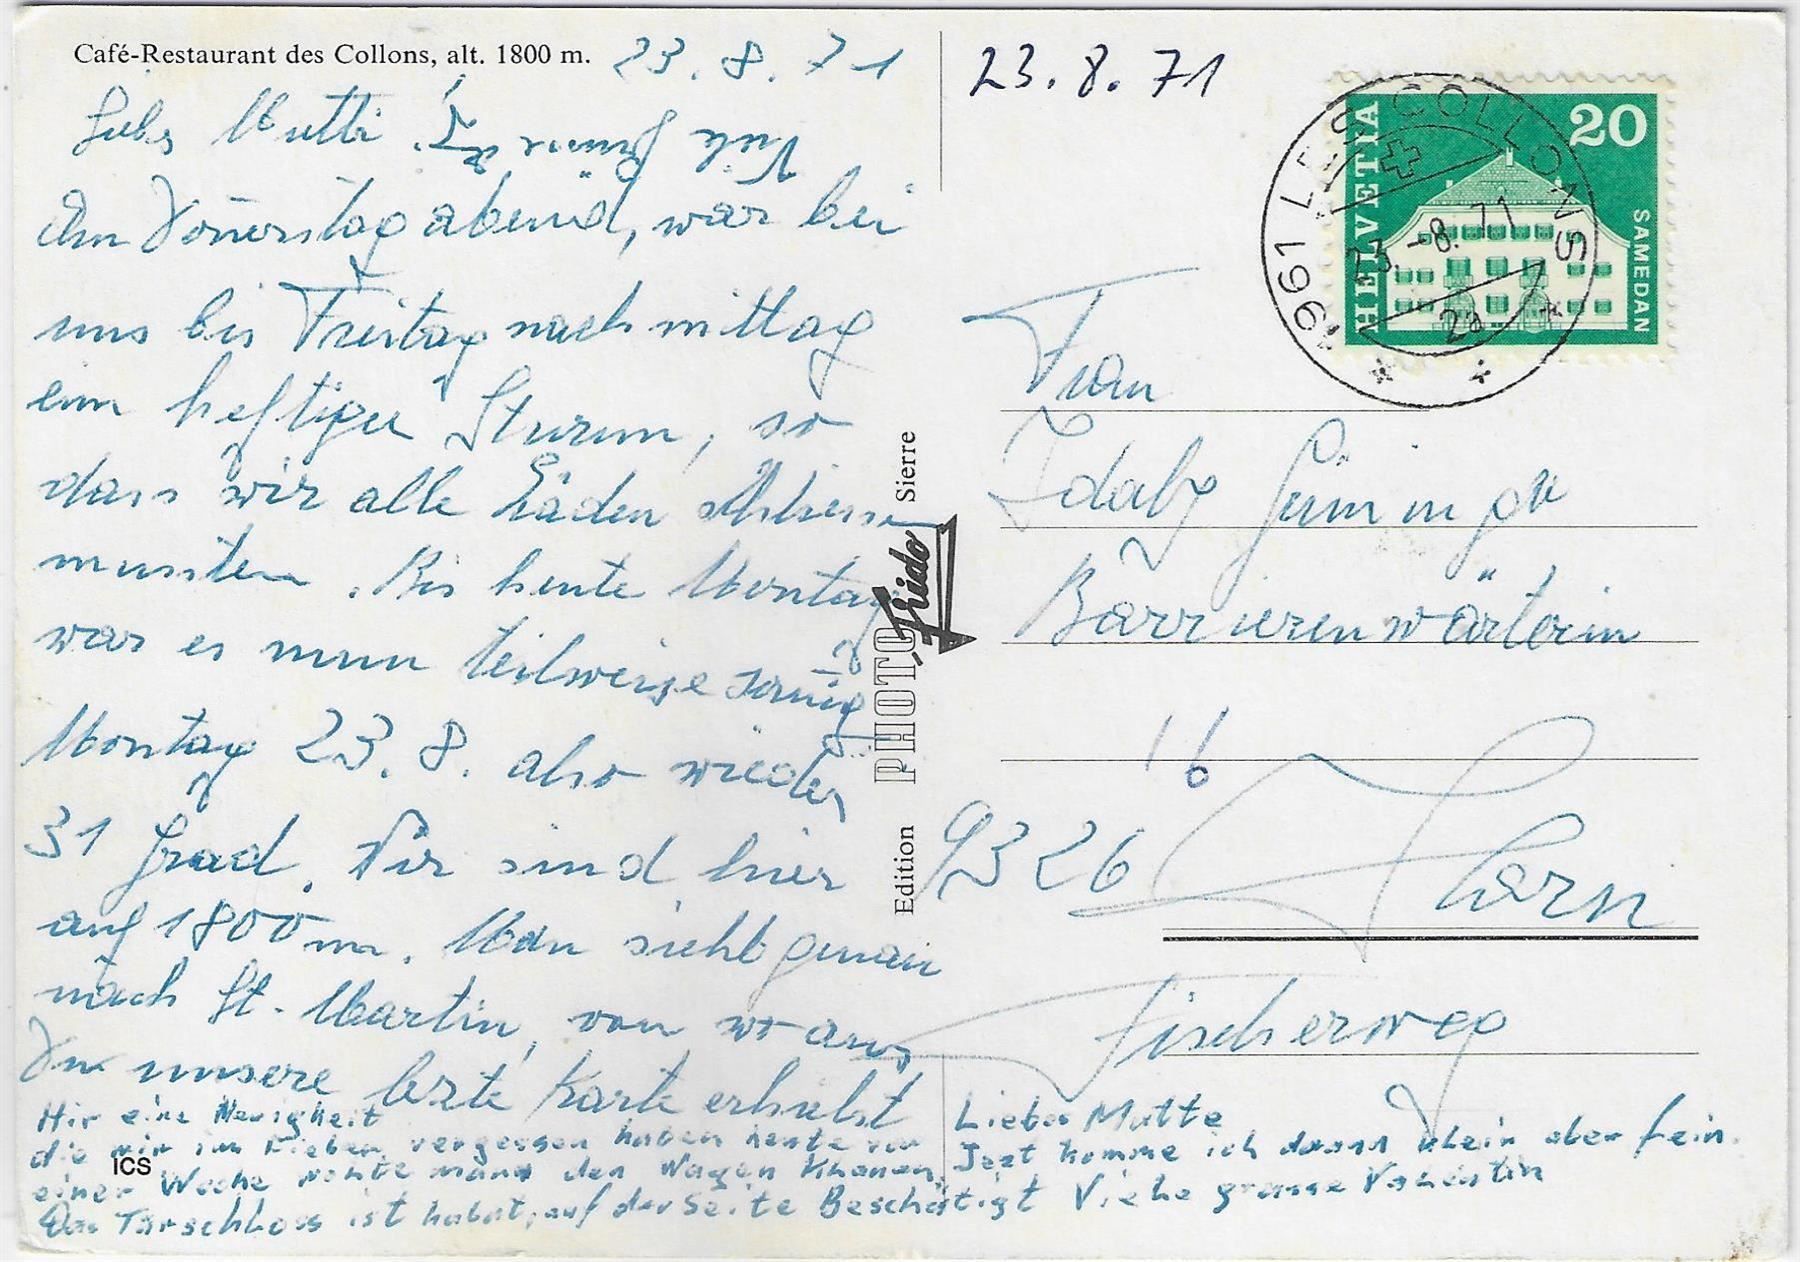 Café-Restaurant des Collons, alt. 1800 m. 23. 8. 71
Liebs Mutti!
Am Donerstag abend, war bei
uns bis Freitag nachmittag
ein heftiger Sturm, so
dass wir alle Läden schliessen
mussten. Bis heute Montag
war es nun teilweise sonig
Montag 23. 8. also wieder
31 Grad. Wir sind hier
auf 1800 m. Man sieht genau
nach St. Martin, von wo aus
Du unsere lezte Karte erhielst
Hir eine Neuigheit
die wir im vergessen haben heute vor
einer Woche den Wagen
Das Türschloss ist auf der Seite Beschätigt
ICS
Edition PHOTO Frido Sierre
23. 8. 71
HELVETIA
20
SAMEDAN
1961 LES COLLONS
23. -8. 71
2a
Frau
Idaly
Barrierenwärterin
16
9326 Horn
Fischerweg
Liebes Mutte
Jezt komme ich daran klein aber fein.
Viehe grosse Valentin